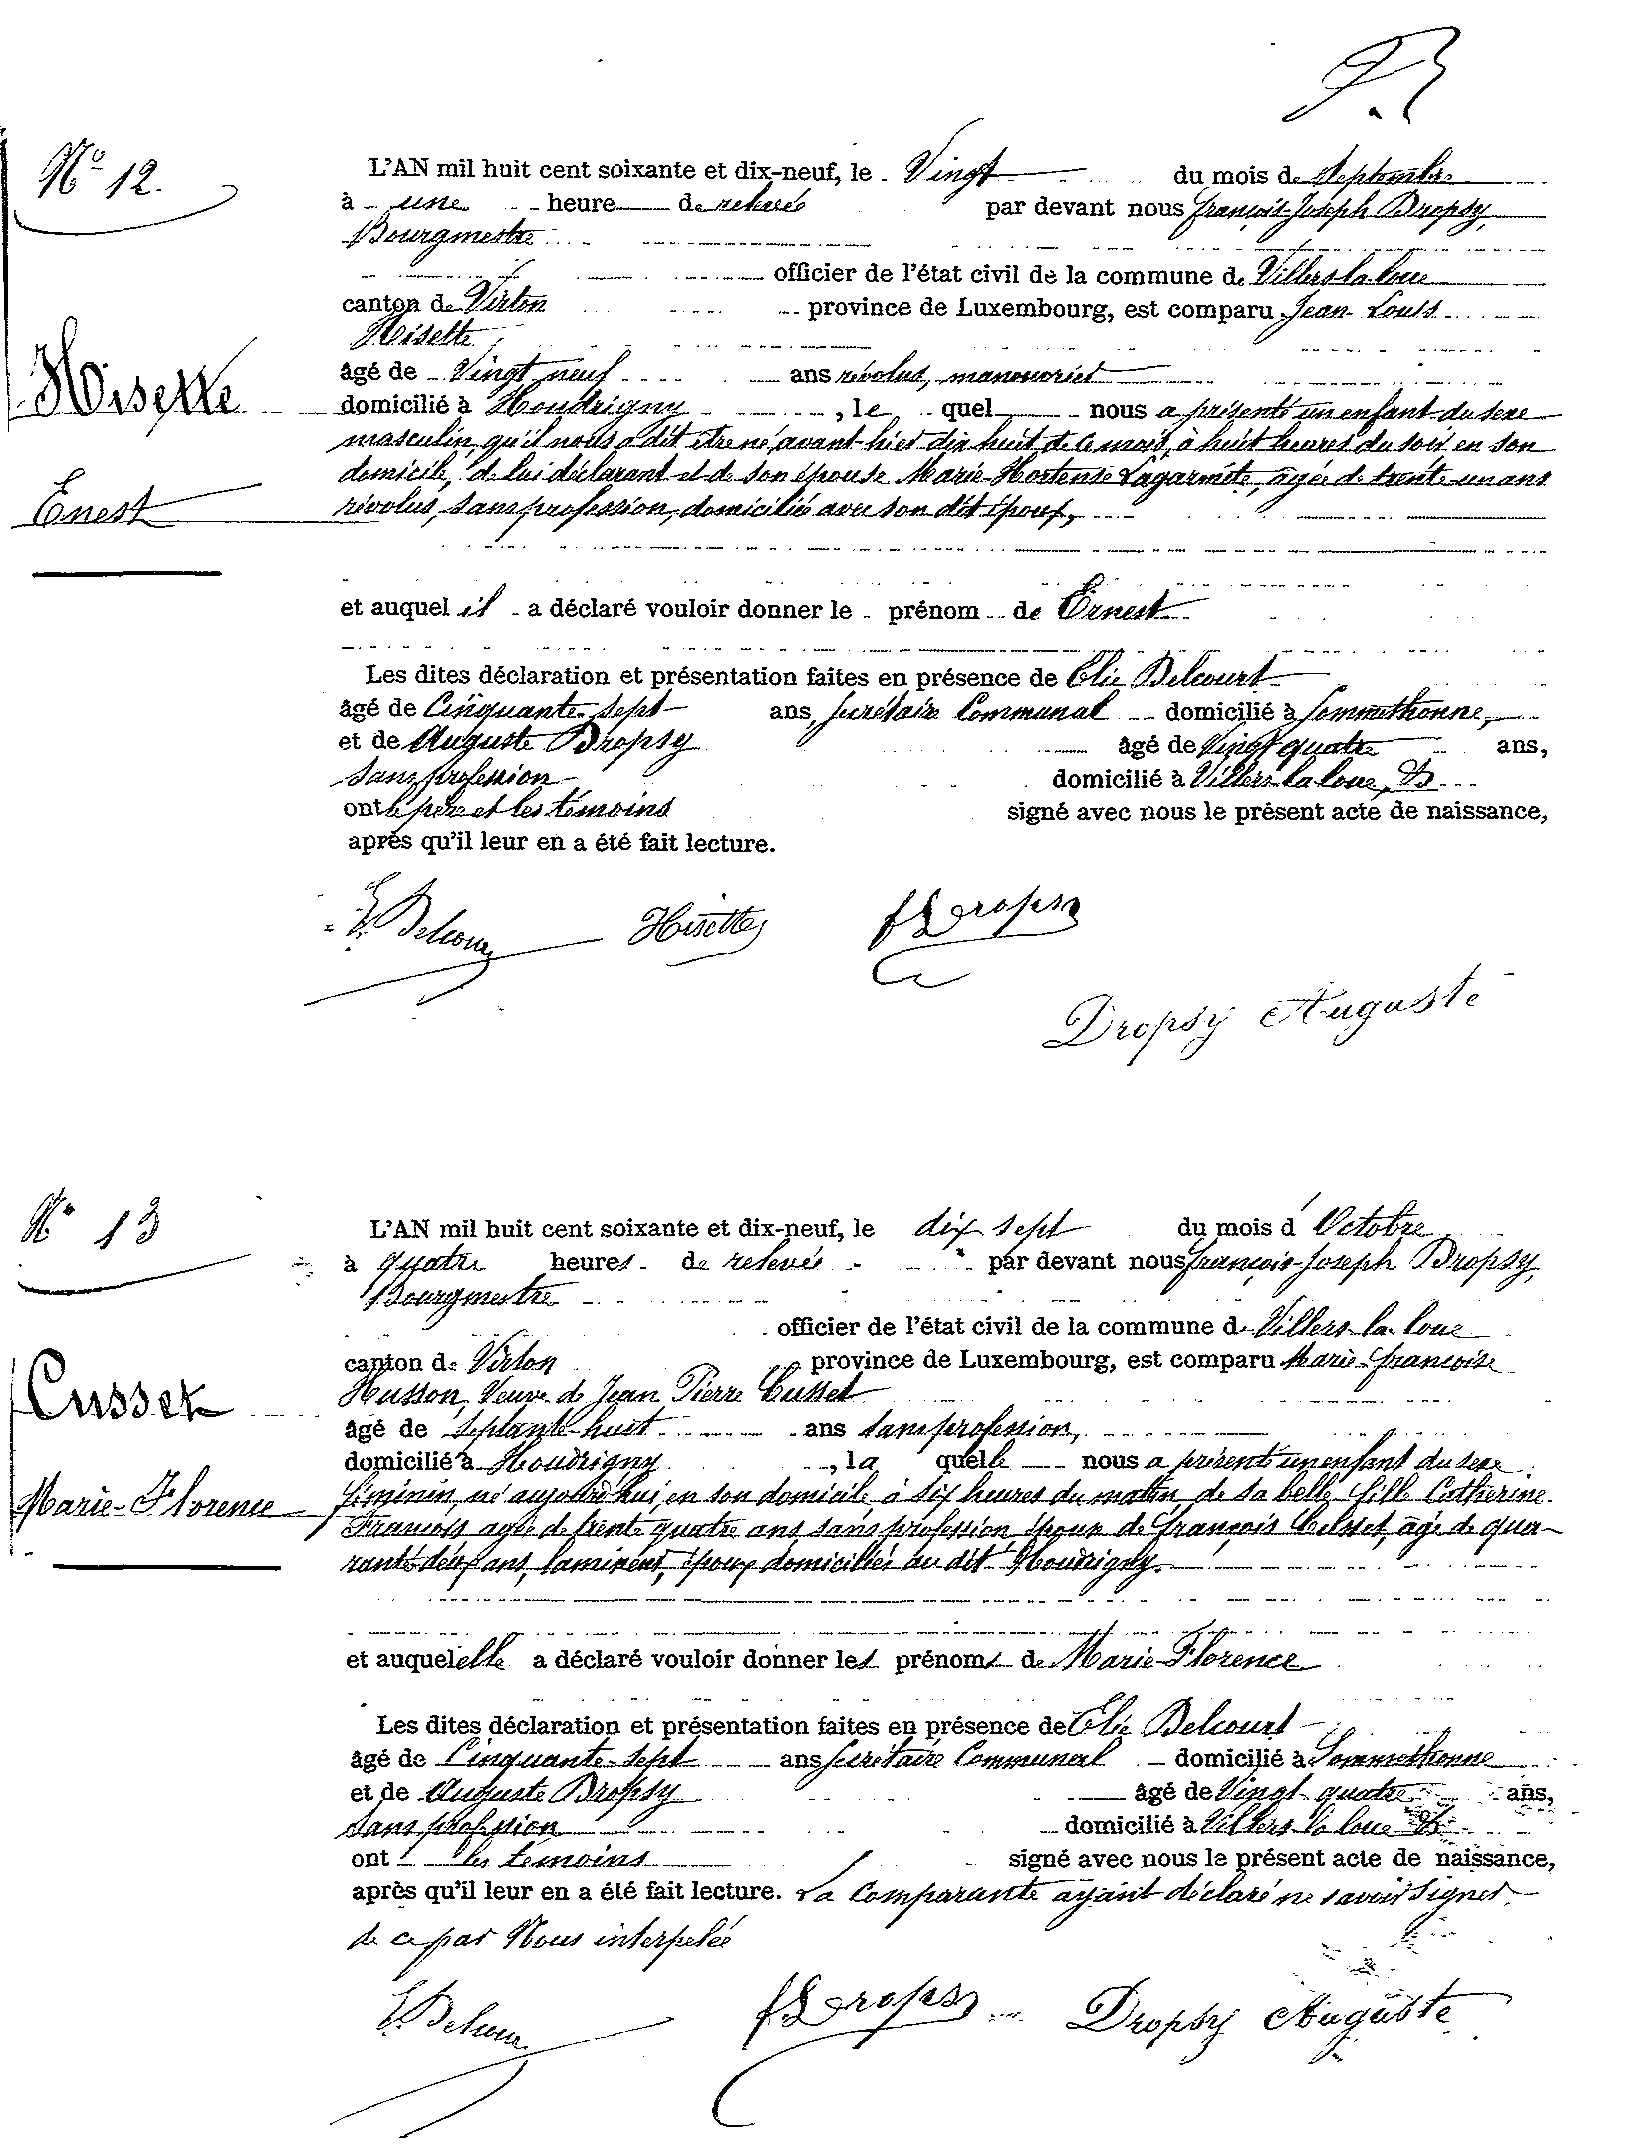 N° 12.
L'AN mil huit cent soixante et dix-neuf, le Vingt du mois de Septembre
à une heure de relevée par devant nous François-Joseph Dropsy,
Bourgmestre
officier de l'état civil de la commune de Villers-la-loue
canton de Virton province de Luxembourg, est comparu Jean Louis
Hisette,
Hisette
âgé de Vingt neuf ans révolus, manouvrier
domicilié à Houdrigny, le quel nous a présenté un enfant du sexe
masculin, qu'il nous a dit être né, avant-hier dix huit de ce mois, à huit heures du soir, en son
domicile, de lui déclarant et de son épouse Marie-Hortense Lagarmite, agée de trente un ans
Ernest
révolus, sans profession, domiciliée avec son dit époux,
et auquel il a déclaré vouloir donner le prénom de Ernest
Les dites déclaration et présentation faites en présence de Elie Delcourt
âgé de Cinquante-sept ans, Secrétaire Communal domicilié à Sommethonne,
et de Auguste Dropsy âgé de Vingt quatre ans,
Sans profession domicilié à Villers la loue, &
ont le père et les témoins signé avec nous le présent acte de naissance,
après qu'il leur en a été fait lecture.
E. Delcour Hisette fDropsy
Dropsy Auguste
N° 13
L'AN mil huit cent soixante et dix-neuf, le dix sept du mois d'Octobre
à quatre heures de relevée par devant nous François-Joseph Dropsy,
Bourgmestre
officier de l'état civil de la commune de Villers-la-loue
canton de Virton province de Luxembourg, est comparu Marie-Francoise
Cusset
Husson, Veuve de Jean Pierre Cusset
âgé de Septante-huit ans sans profession,
domicilié à Houdrigny, la quelle nous a présenté un enfant du sexe
Marie-Florence
féminin, né aujourd'hui, en son domicile, à six heures du matin, de sa belle fille Catherine
François agée de trente quatre ans sans profession, épouse de François Cusset, âgé de qua-
rante-deux ans, lamineur, époux domiciliés au dit Houdrigny.
et auquel elle a déclaré vouloir donner les prénoms de Marie-Florence
Les dites déclaration et présentation faites en présence de Elie Delcourt
âgé de Cinquante-sept ans Secrétaire Communal domicilié à Sommethonne
et de Auguste Dropsy âgé de Vingt quatre ans,
Sans profession domicilié à Villers la loue &
ont les témoins signé avec nous le présent acte de naissance,
après qu'il leur en a été fait lecture. La Comparante ayant déclaré ne savoir signer
de ce par Nous interpelée
E. Delcour fDropsy Dropsy Auguste